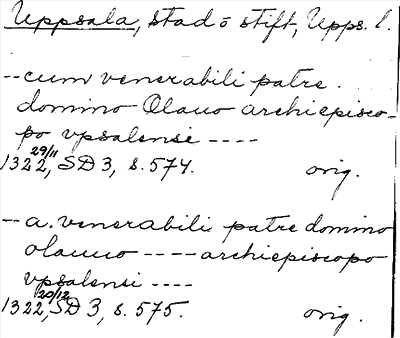 Uppsala, stad o stift, Upps. l.
-- cum venerabili patre
domino Olauo archiepisco-
po vpsalensi ----
29/11
1322, SD 3, s. 574. orig.
-- a. venerabili patre domino
olauuo ---- archiepiscopo
vpsalensi ----
20/12
1322, SD 3, s. 575. orig.